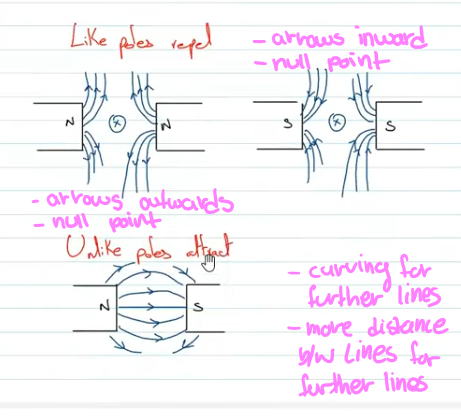 Like poles repel
- arrows inward
- null point
N
x
N
S
x
S
- arrows outwards
- null point
Unlike poles attract
N
S
- curving for
further lines
- more distance
b/w lines for
further lines